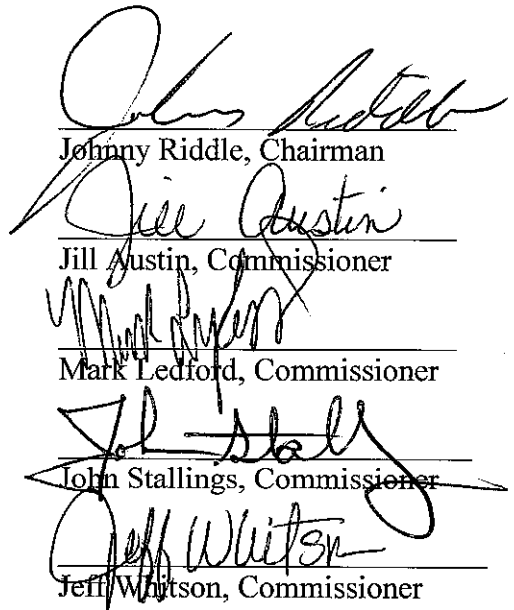 Johnny Riddle
Johnny Riddle, Chairman
Jill Austin
Jill Austin, Commissioner
Mark Ledford, Commissioner
John Stall
John Stallings, Commissioner
Jeff Whitson
Jeff Whitson, Commissioner